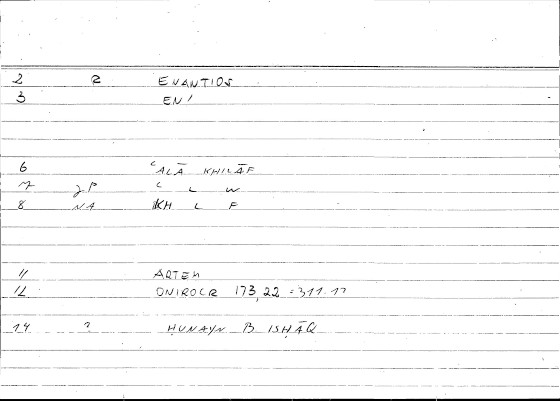 2 2 ENANTIOS
3 EN'
6 ʿALĀ KHILĀF
7 JP ʿ L W
8 NA KH L F
11 ARTEM
12 ONIROCR 173,22 = 311.17
14 ? ḤUNAYN B ISḤĀQ